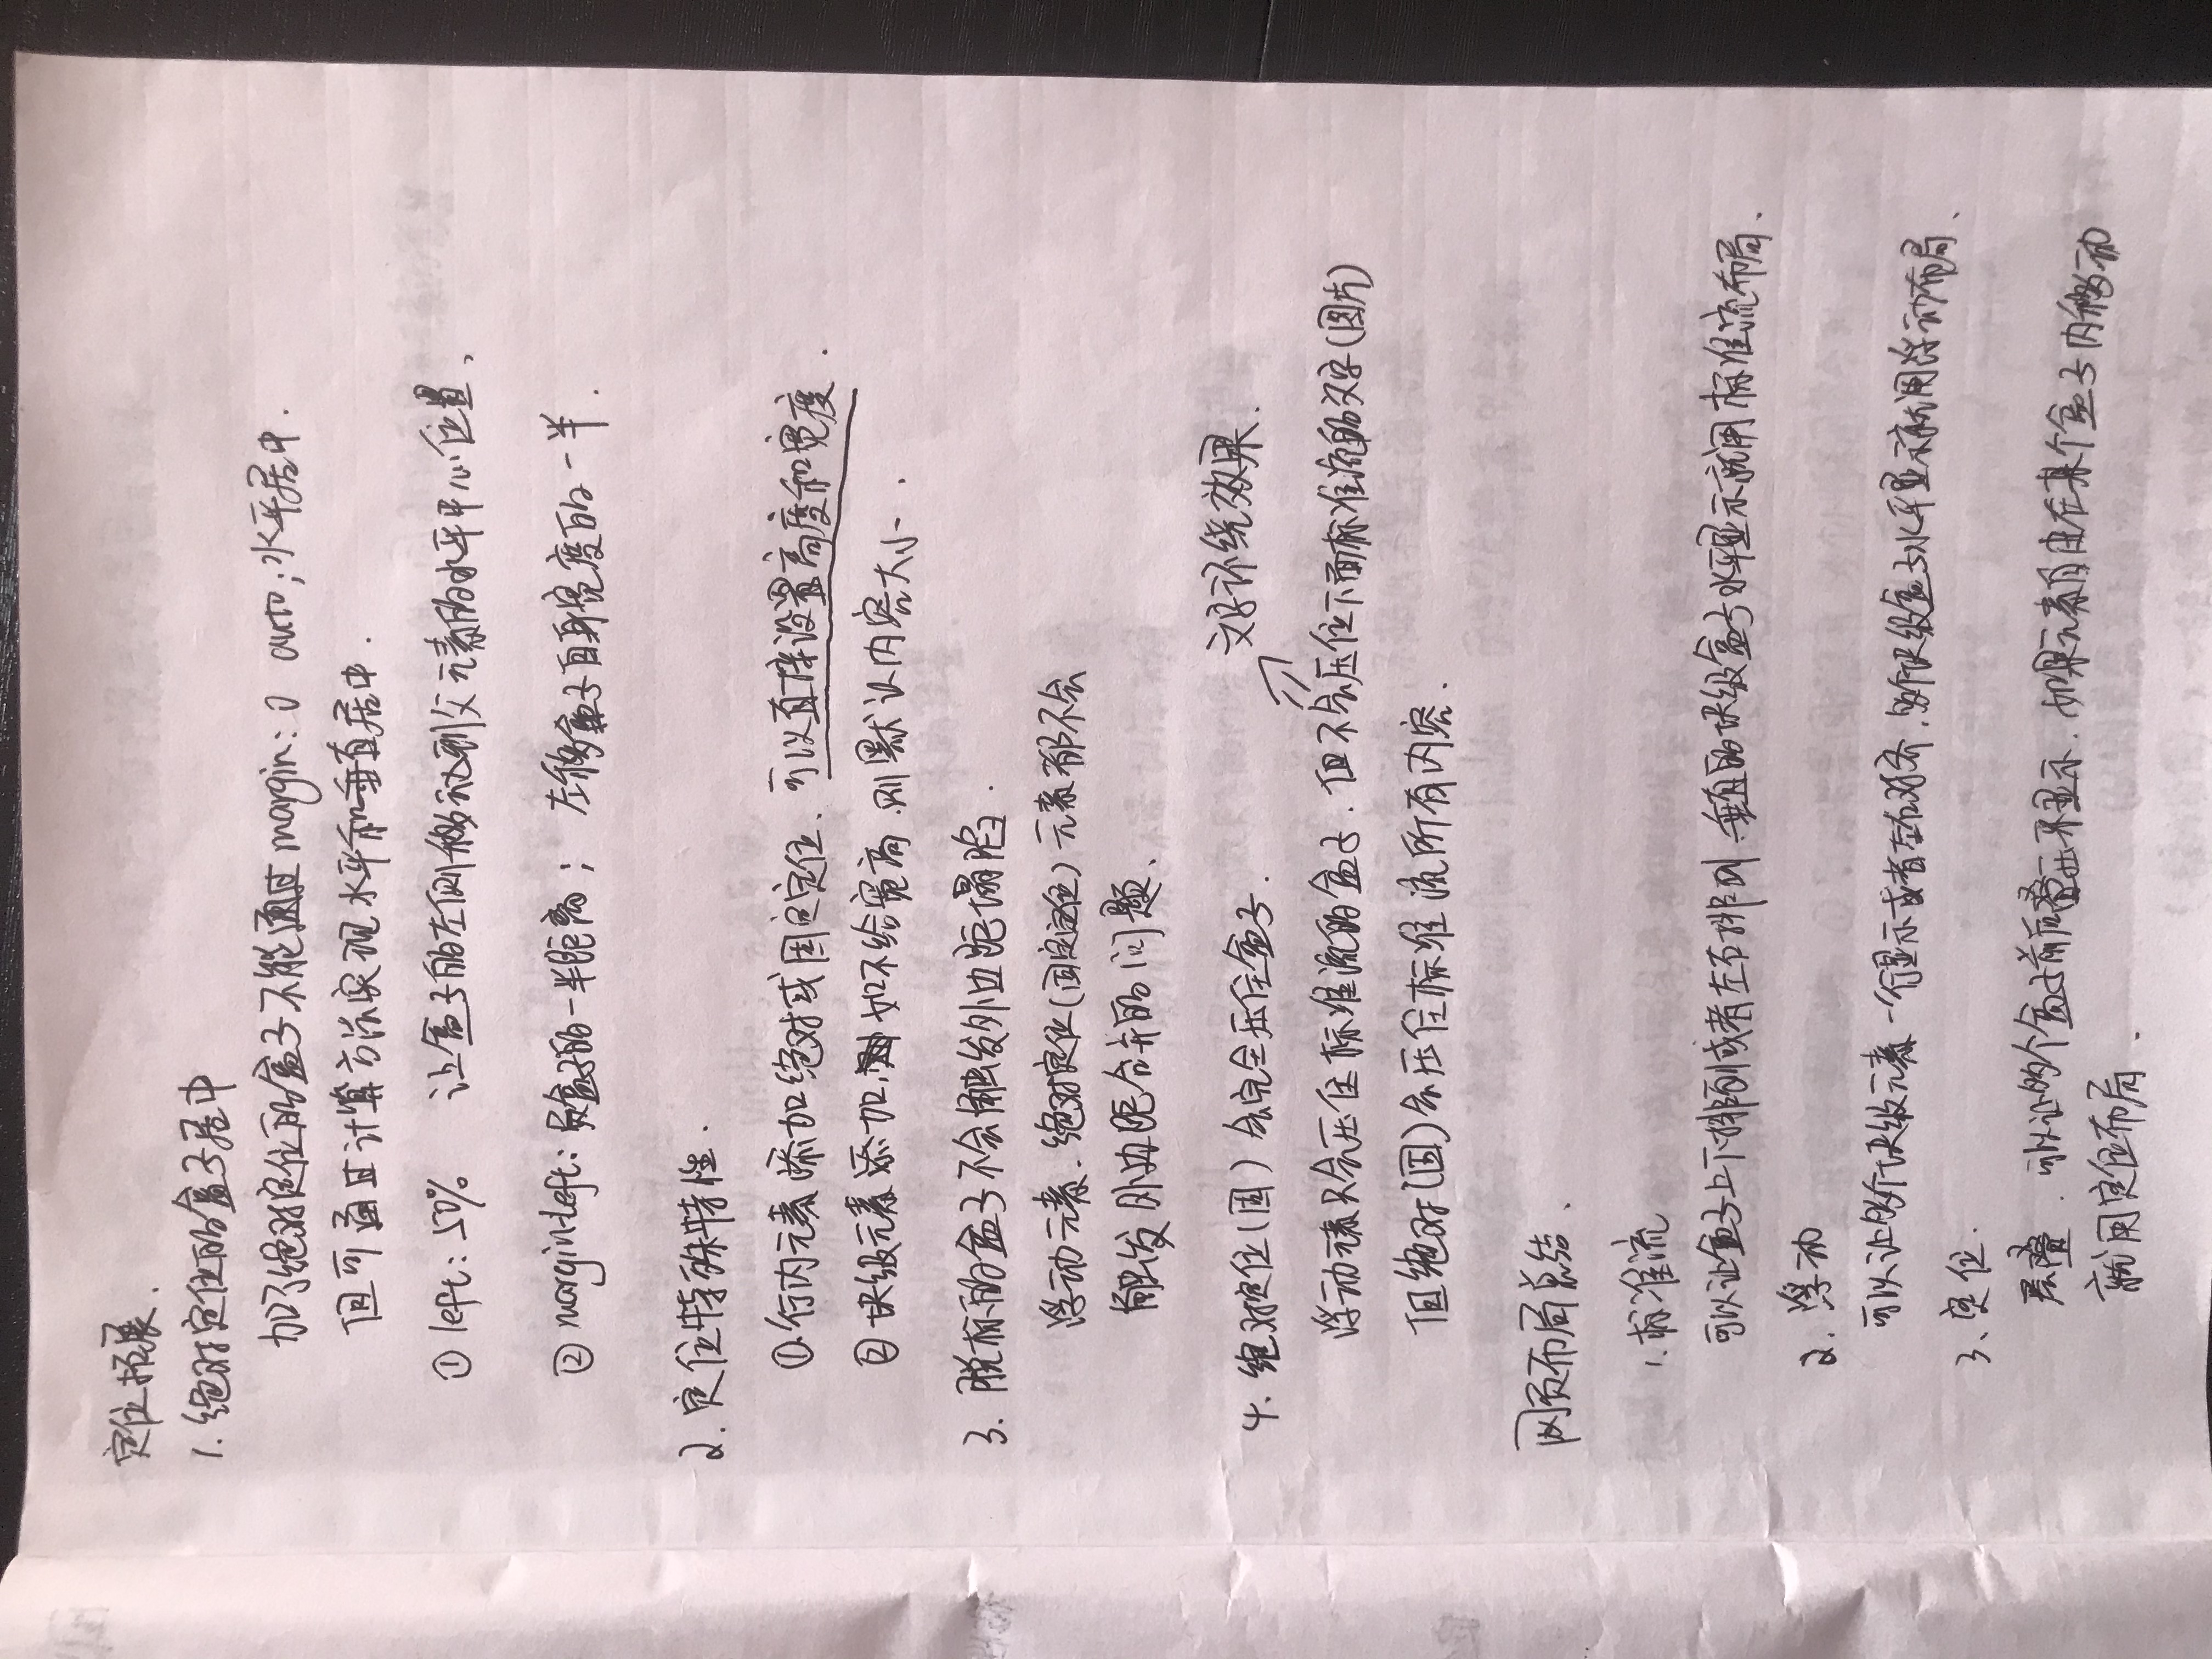 定位拓展.
1. 绝对定位的盒子居中
加了绝对定位的盒子不能通过margin: 0 auto;水平居中.
但可通过计算方法实现水平和垂直居中.
① left: 50% 让盒子的左侧移动到父元素的水平中心位置、
② margin-left: 负盒子的一半距离; 左移盒子自身宽度的一半.
2. 定位特殊特性.
①.行内元素添加绝对或固定定位、可以直接设置高度和宽度.
② 块级元素添加, 如不给宽高.则默认内容大小.
3. 脱标的盒子不会触发外边距塌陷.
浮动元素、绝对定位(固定定位)元素都不会
触发外边距合并的问题、
文字环绕效果.
4、绝对定位(固)会完全压住盒子.
浮动元素只会压住标准流的盒子.但不会压住下面标准流的文字(图片)
但绝对(固)会压住标准流所有内容.
网页布局总结、
1.标准流
可以让盒子上下排列或者左右排列、垂直的块级盒子水平显示就用标准流布局、
2. 浮动
可以让多个块级元素一行显示或者左右对齐,多个块级盒子水平显示就用浮动布局、
3、定位.
层叠.可以让多个盒子前后叠压来显示.如果元素自由在某个盒子内移动
就用定位布局.